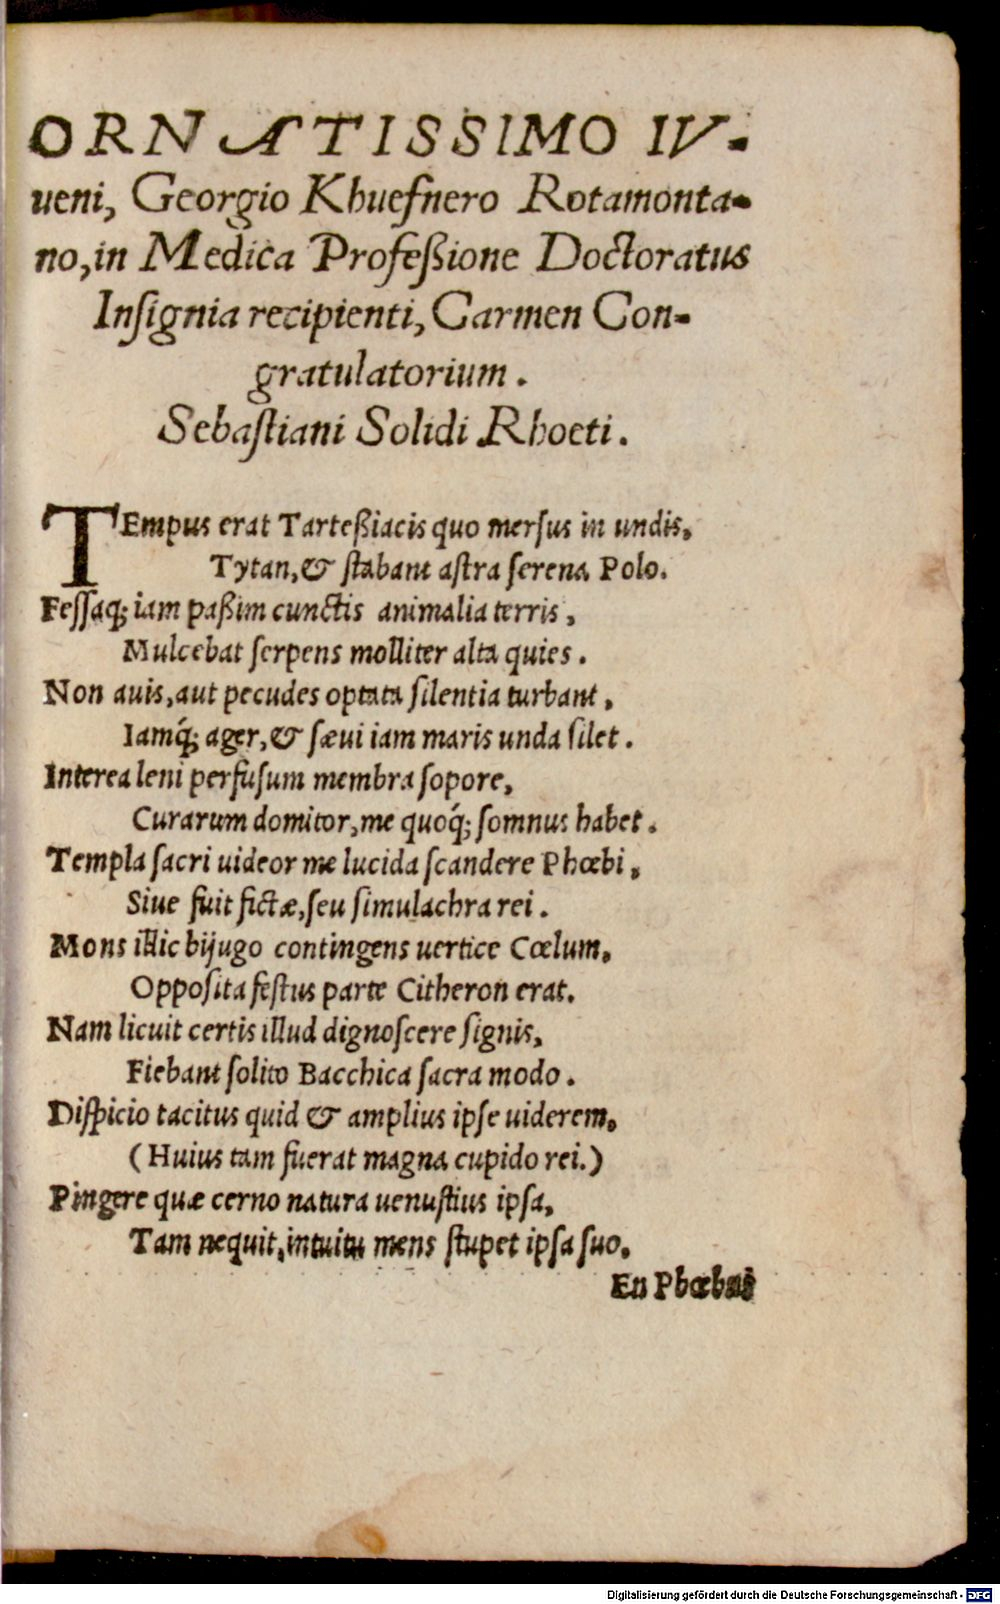 ORNATISSIMO IV-
ueni, Georgio Khueſnero Rotamonta-
no, in Medica Profeßione Doctoratus
Inſignia recipienti, Carmen Con-
gratulatorium.
Sebaſtiani Solidi Rhoeti.
TEmpus erat Tarteßiacis quo merſus in undis,
Tytan, & ſtabant aſtra ſerena Polo.
Feſſaq; iam paßim cunctis animalia terris,
Mulcebat ſerpens molliter alta quies.
Non auis, aut pecudes optata ſilentia turbant,
Iamq́; ager, & ſæui iam maris unda ſilet.
Interea leni perfuſum membra ſopore,
Curarum domitor, me quoq́; ſomnus habet.
Templa ſacri uideor me lucida ſcandere Phœbi,
Siue fuit fictæ, ſeu ſimulachra rei.
Mons illic bijugo contingens uertice Cœlum,
Oppoſita feſtus parte Citheron erat.
Nam licuit certis illud dignoſcere ſignis,
Fiebant ſolito Bacchica ſacra modo.
Diſpicio tacitus quid & amplius ipſe uiderem,
(Huius tam fuerat magna cupido rei.)
Pingere quæ cerno natura uenuſtius ipſa,
Tam nequit, intuitu mens ſtupet ipſa ſuo.
En Phœbus
Digitalisierung gefördert durch die Deutsche Forschungsgemeinschaft - DFG